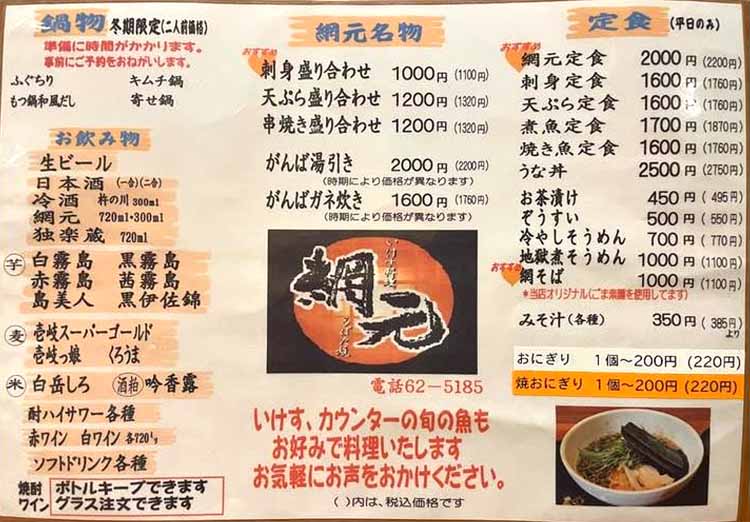 鍋物 冬期限定(二人前価格)
準備に時間がかかります。
事前にご予約をおねがいします。
ふぐちり キムチ鍋
もつ鍋和風だし 寄せ鍋
お飲み物
生ビール
日本酒 (一合)(二合)
冷酒 杵の川 300ml
網元 720ml・300ml
独楽蔵 720ml
芋 白霧島 黒霧島
赤霧島 茜霧島
島美人 黒伊佐錦
麦 壱岐スーパーゴールド
壱岐っ娘 くろうま
米 白岳しろ 酒粕 吟香露
酎ハイサワー各種
赤ワイン 白ワイン 各720㎖
ソフトドリンク各種
焼酎 ボトルキープできます
ワイン グラス注文できます
網元名物
おすすめ
刺身盛り合わせ 1000円(1100円)
天ぷら盛り合わせ 1200円(1320円)
串焼き盛り合わせ 1200円(1320円)
がんば湯引き 2000円(2200円)
(時期により価格が異なります)
がんばガネ炊き 1600円(1760円)
(時期により価格が異なります)
網元
電話62-5185
いけす、カウンターの旬の魚も
お好みで料理いたします
お気軽にお声をおかけください。
( )内は、税込価格です
定食 (平日のみ)
おすすめ
網元定食 2000円(2200円)
刺身定食 1600円(1760円)
天ぷら定食 1600円(1760円)
煮魚定食 1700円(1870円)
焼き魚定食 1600円(1760円)
うな丼 2500円(2750円)
お茶漬け 450円(495円)
ぞうすい 500円(550円)
冷やしそうめん 700円(770円)
地獄煮そうめん 1000円(1100円)
おすすめ
網そば 1000円(1100円)
*当店オリジナル(ごま素麺を使用してます)
みそ汁(各種) 350円(385円)より
おにぎり 1個～200円(220円)
焼おにぎり 1個～200円(220円)